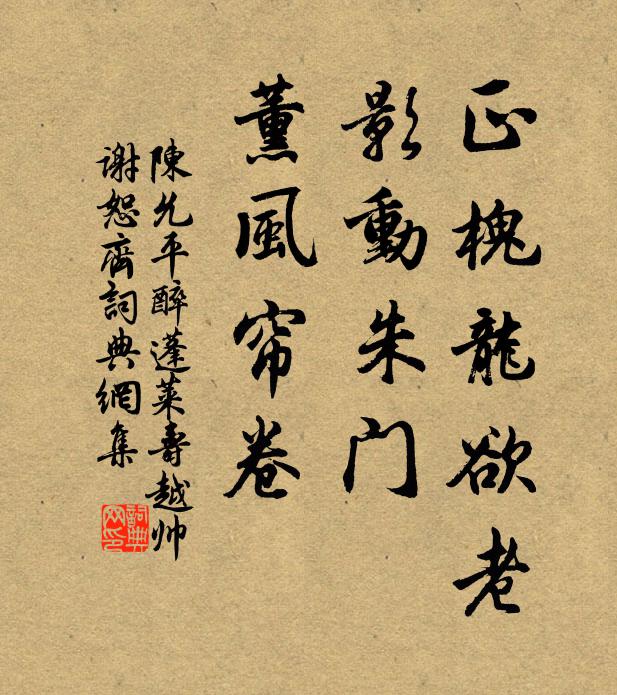 正槐龍欲老
影動朱門
薰風帘卷
陳允平醉蓬萊壽越帅
謝恕齋詞典網集
詞典
网